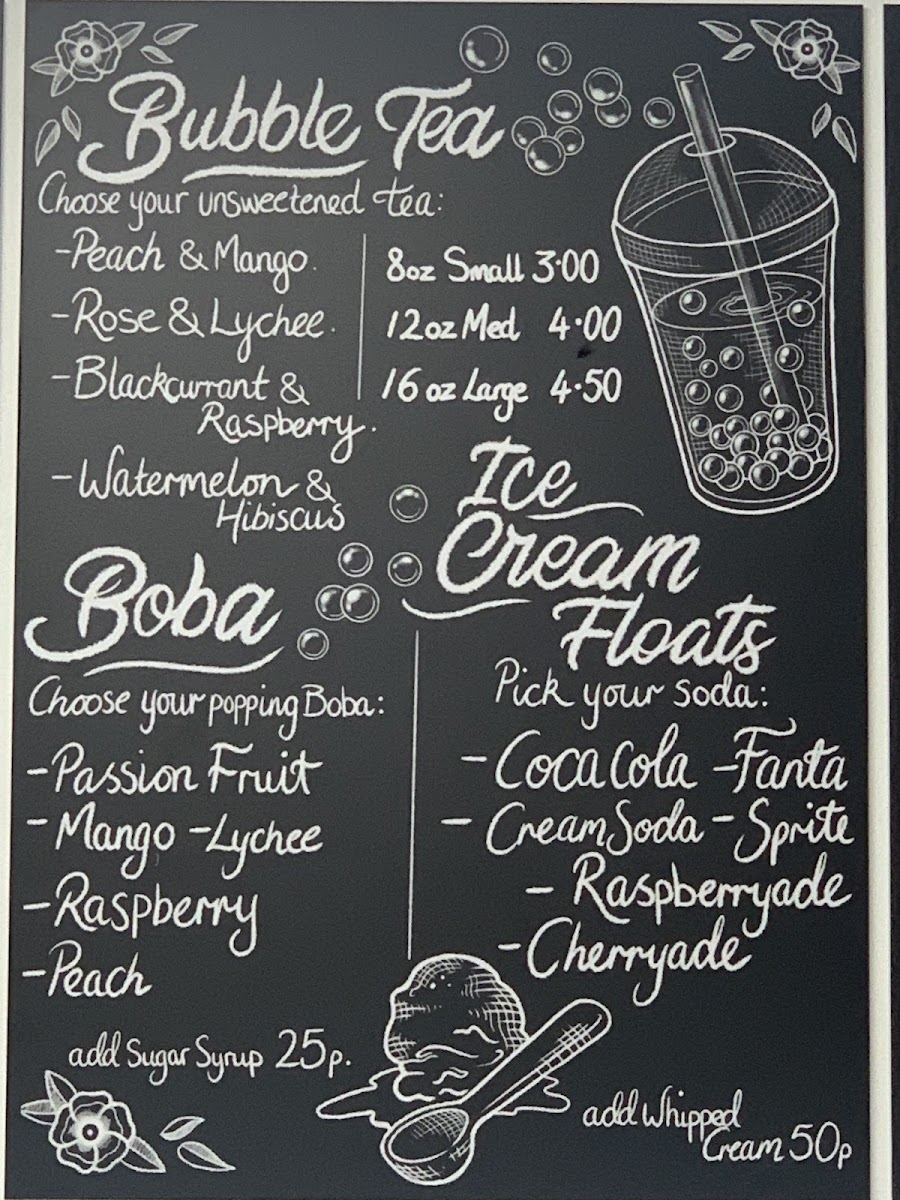 Bubble Tea
Choose your unsweetened tea:
-Peach & Mango.
-Rose & Lychee.
-Blackcurrant &
Raspberry.
-Watermelon &
Hibiscus
8oz Small 3·00
12oz Med 4·00
16oz Large 4·50
Boba
Choose your popping Boba:
-Passion Fruit
-Mango -Lychee
-Raspberry
-Peach
add Sugar Syrup 25p.
Ice
Cream
Floats
Pick your soda:
-Coca Cola -Fanta
-Cream Soda -Sprite
-Raspberryade
-Cherryade
add Whipped
Cream 50p